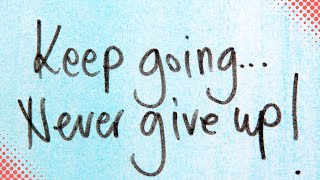 Keep going...
Never give up!